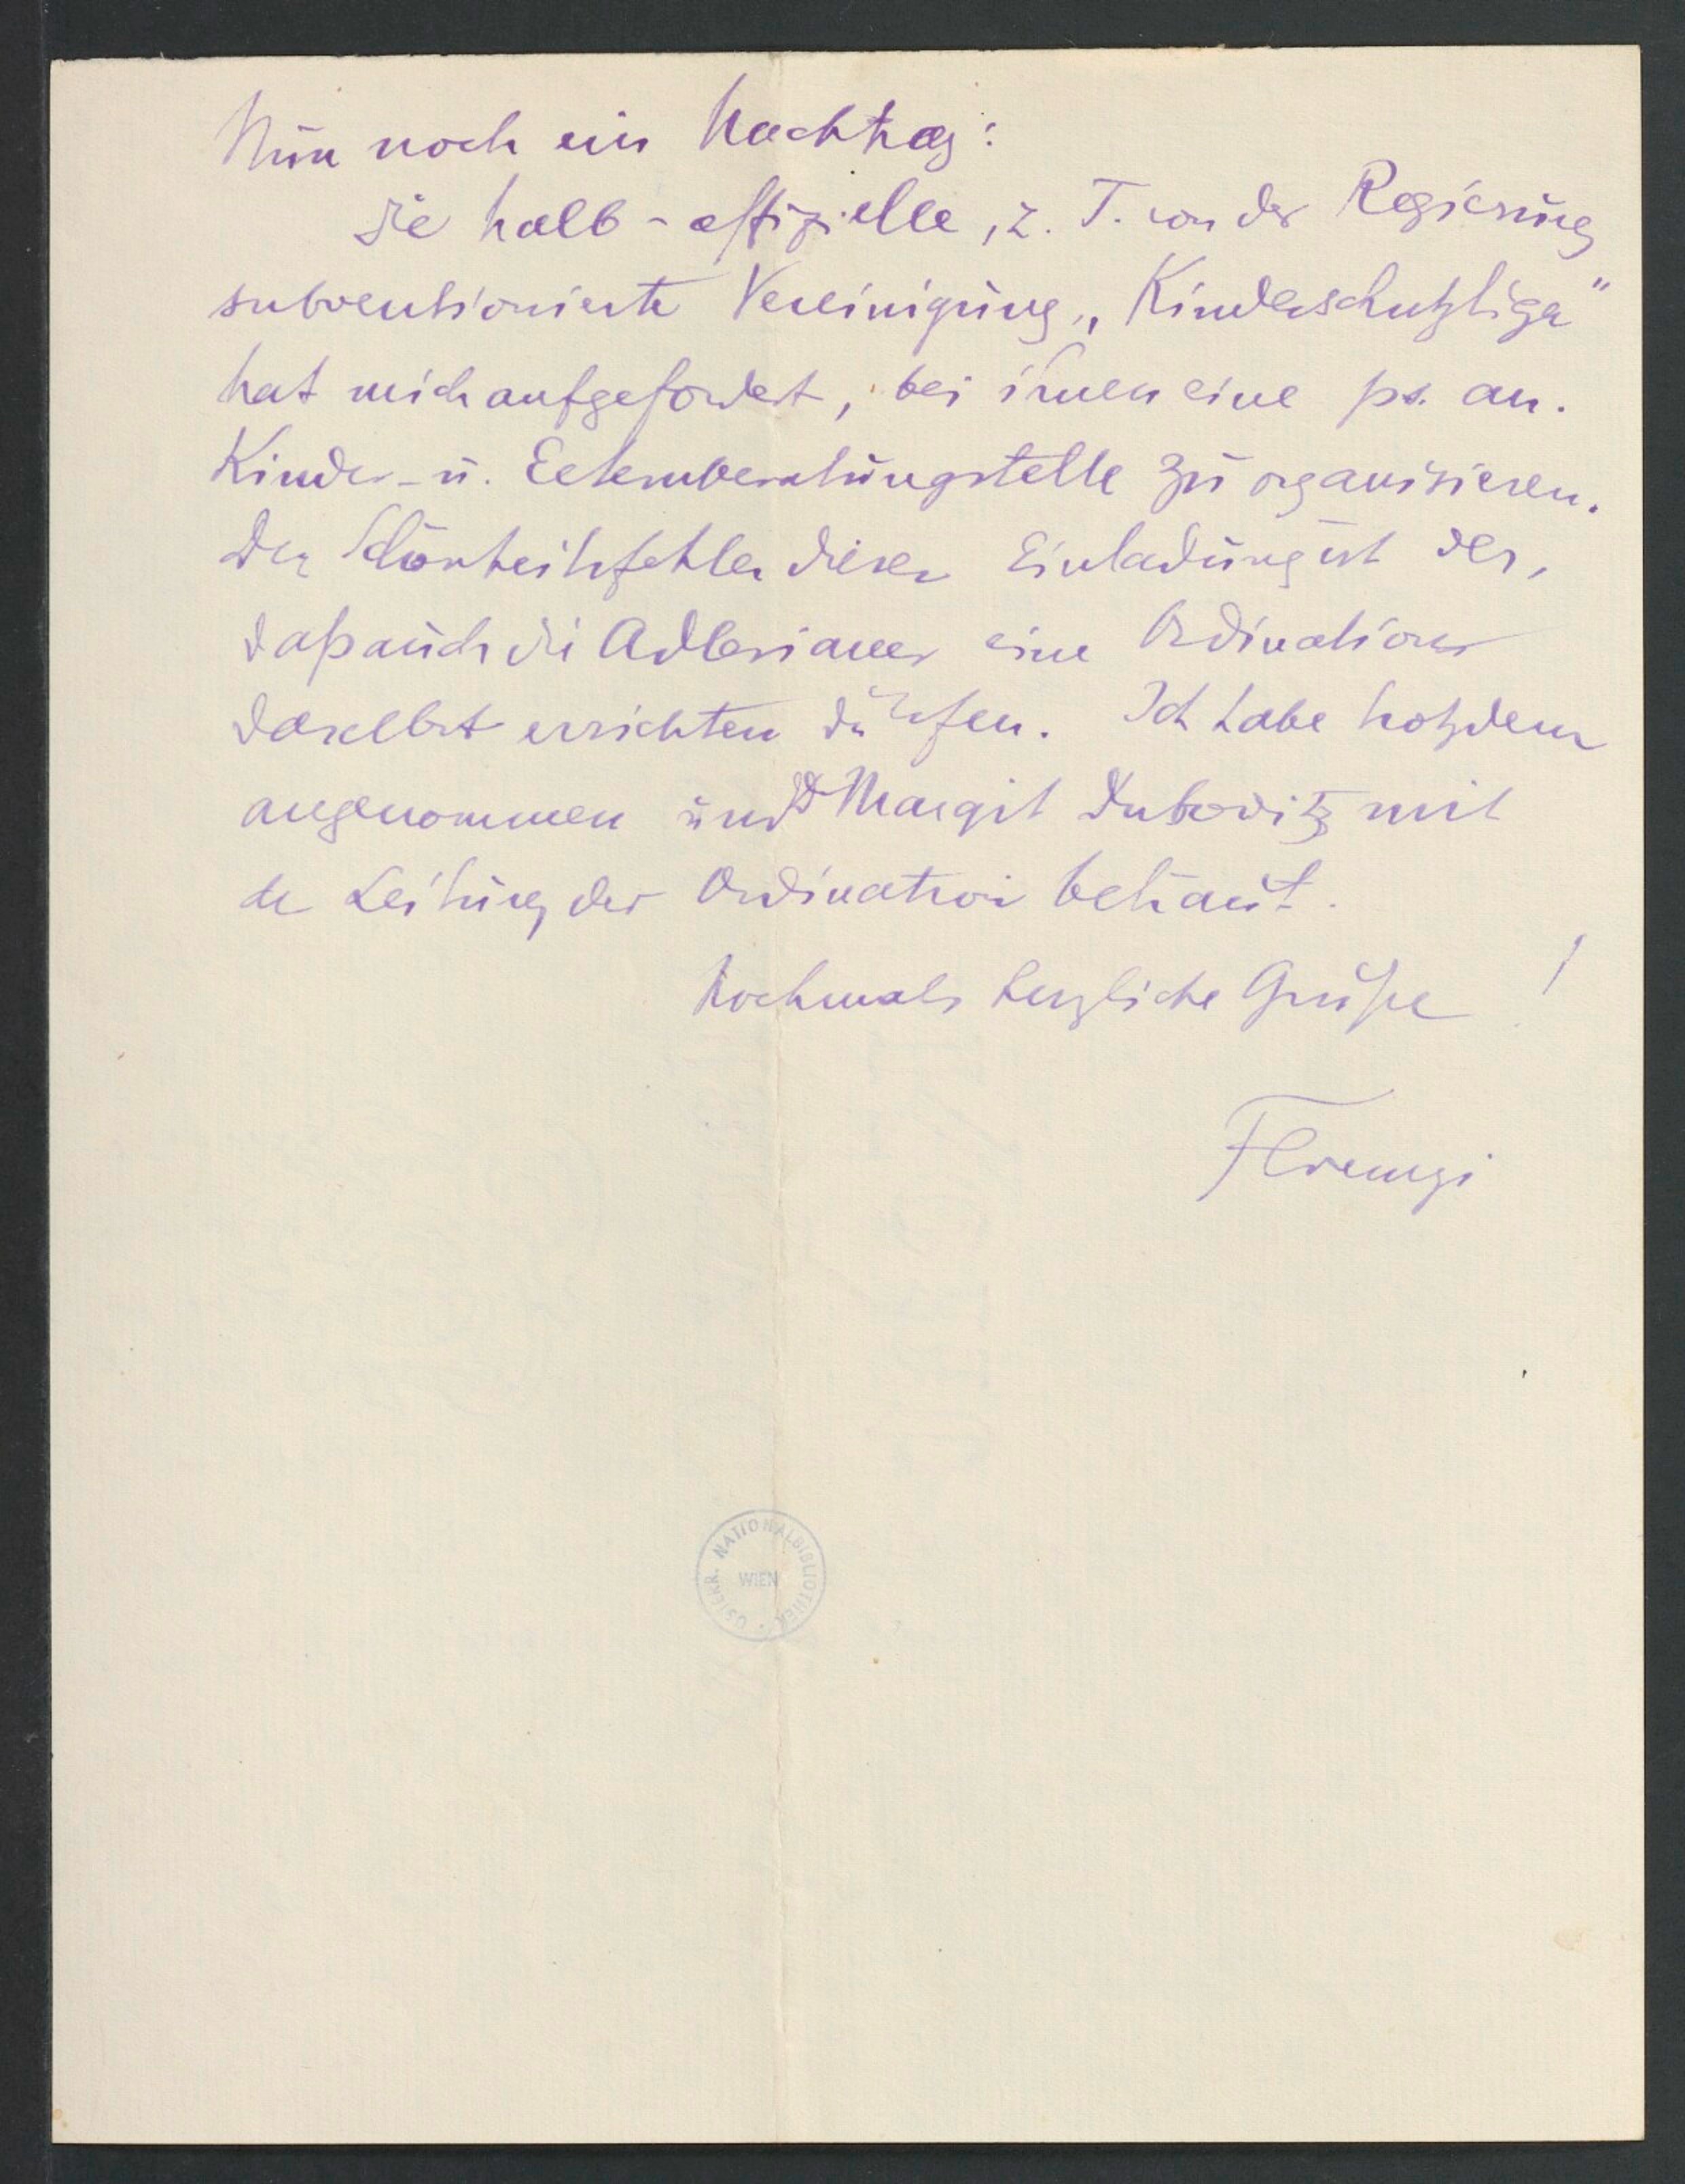 Nun noch ein Nachtrag:
Die halb-offizielle, z. T. von der Regierung
subventionierte Vereinigung „Kinderschutzliga"
hat mich aufgefordert, bei ihnen eine ps. an.
Kinder- u. Elternberatungstelle zu organisieren.
Der Schönheitsfehler dieser Einladung ist der,
daß auch die Adlerianer eine Ordination
daselbst errichten dürfen. Ich habe trotzdem
angenommen und D Margit Dubovitz mit
der Leitung der Ordination betraut.
Nochmals herzliche Grüße!
Ferenczi
ÖSTERR. NATIONALBIBLIOTHEK
WIEN